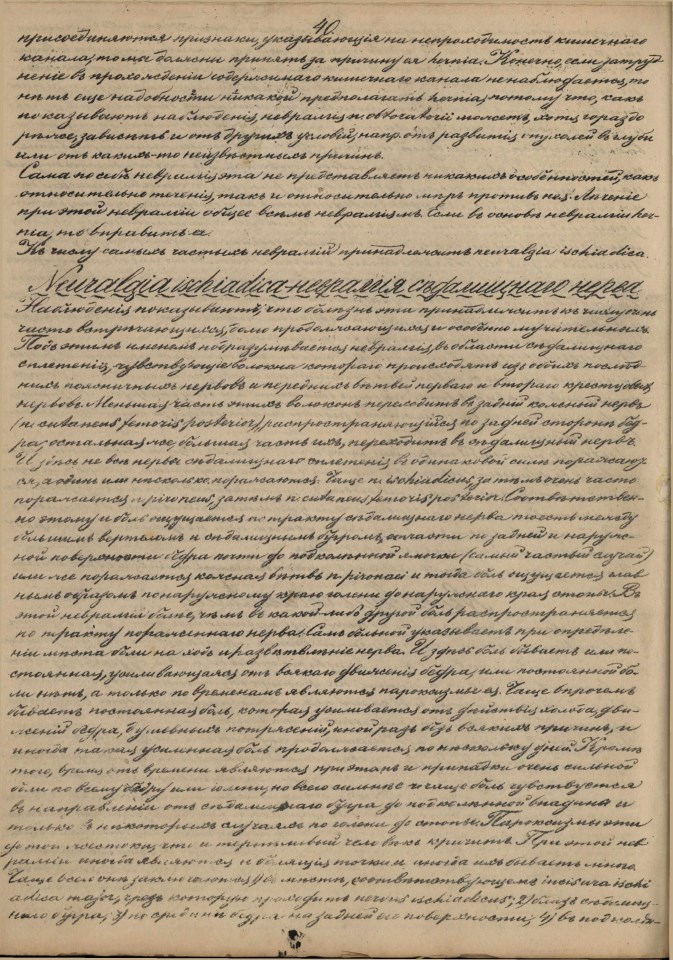 40
присоединяются признаки, указывающія на непроходимость кишечнаго
канала, то мы должны принять за причину ея hernia. Конечно, если затруд-
неніе въ прохожденіи содержимаго кишечнаго канала не наблюдается, то
нѣтъ еще надобности никакой предполагать hernia, потому что, какъ
показываютъ наблюденія, невралгія n. obturatorii можетъ, хотя гораздо
рѣже, зависѣть и отъ другихъ условій, напр. отъ развитія опухолей въ глуби
или отъ какихъ-то неизвѣстныхъ причинъ.
Сама по себѣ невралгія эта не представляетъ никакихъ особенностей, какъ
относительно теченія, такъ и относительно мѣръ противъ нея. Леченіе
при этой невралгіи общее всѣмъ невралгіямъ. Если въ основѣ невралгіи her-
nia, то вправить ее.
Къ числу самыхъ частыхъ невралгій принадлежитъ neuralgia ischiadica.
Neuralgia ischiadica-невралгія сѣдалищнаго нерва
Наблюденія показываютъ, что болѣзнь эта принадлежитъ къ числу очень
часто встрѣчающихся, долго продолжающихся и особенно мучительныхъ.
Подъ этимъ именемъ подразумѣвается невралгія въ области сѣдалищнаго
сплетенія, чувствующія волокна котораго происходятъ изъ обоихъ послѣд-
нихъ поясничныхъ нервовъ и переднихъ вѣтвей перваго и второго крестцовыхъ
нервовъ. Меньшая часть этихъ волоконъ переходитъ въ задній кожный нервъ
(n. cutaneus femoris posterior), распространяющійся по задней сторонѣ бед-
ра; остальная же, бо́льшая часть ихъ, переходитъ въ сѣдалищный нервъ.
И здѣсь не всѣ нервы сѣдалищнаго сплетенія въ одинаковой силѣ поражают-
ся, а одинъ или нѣсколько поражаются. Чаще n. ischiadicus, затѣмъ очень часто
поражается n. peroneus, затѣмъ n. cutaneus femoris posterior. Соотвѣтствен-
но этому и боль ощущается по тракту сѣдалищнаго нерва то есть между
большимъ вертеломъ и сѣдалищнымъ бугромъ, отчасти по задней и наруж-
ной поверхности бедра почти до подколѣнной ямочки (самый частый случай)
или же поражается кожная вѣтвь n. peronaei и тогда боль ощущается глав-
нымъ образомъ по наружному краю голени до наружнаго края стопы. Въ
этой невралгіи болѣе, чѣмъ въ какой либо другой боль распространяется
по тракту пораженнаго нерва. Самъ больной указываетъ при опредѣле-
ніи мѣста боли на ходъ и развѣтвленіе нерва. И здѣсь боль бываетъ или по-
стоянная, усиливающаяся отъ всякаго движенія бедра, или постоянной бо-
ли нѣтъ, а только по временамъ являются пароксизмы ея. Чаще впрочемъ
бываетъ постоянная боль, которая усиливается отъ дѣйствія холода, дви-
женій бедра, душевныхъ потрясеній, иной разъ безъ всякихъ причинъ, и
иногда такая усиленная боль продолжается по нѣсколько дней. Кромѣ
того, время отъ времени являются при этомъ и припадки очень сильной
боли по всему бедру или голени, но всего сильнѣе и чаще боль чувствуется
въ направленіи отъ сѣдалищнаго бугра до подколѣнной впадины и
только въ нѣкоторыхъ случаяхъ по голени до стопы. Пароксизмы эти
до того жестоки, что и терпѣливый человѣкъ кричитъ. При этой нев-
ралгіи иногда являются и болящія точки и иногда ихъ бываетъ много.
Чаще всего онѣ заключаются 1) въ мѣстѣ, соотвѣтствующемъ incisura ischi-
adica major, чрезъ которую проходитъ nervus ischiadicus; 2) близъ сѣдалищ-
наго бугра; 3) по срединѣ бедра на задней его поверхности; 4) въ подколѣн-